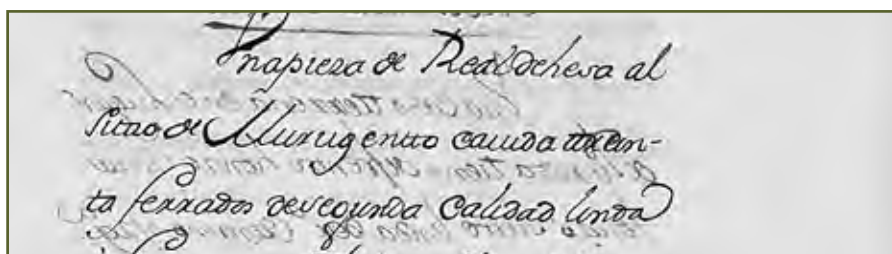 Una pieza de Real dehesa al
sitio de Murugentto cavida trein-
ta ferrados de segunda calidad linda